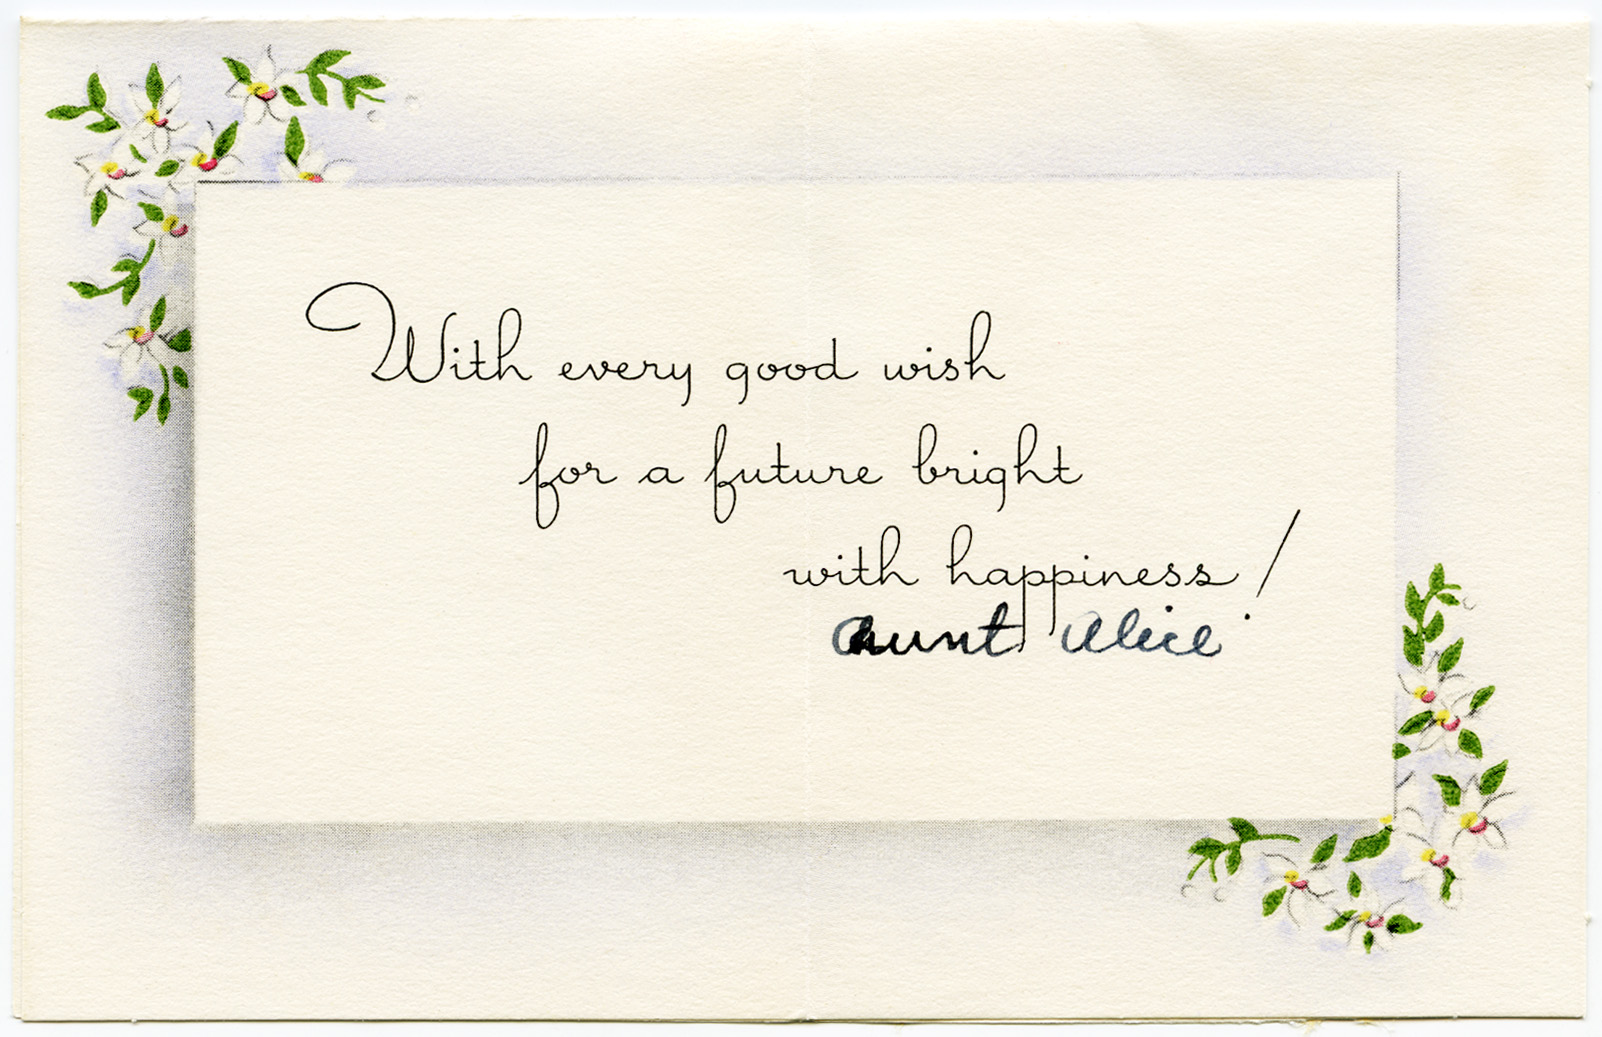 With every good wish
for a future bright
with happiness!
Aunt Alice